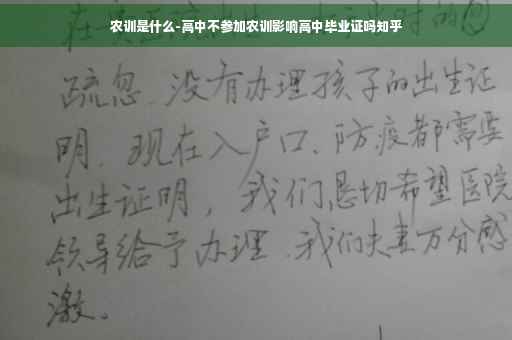 农训是什么-高中不参加农训影响高中毕业证吗知乎
疏忽、没有办理孩子的出生证
明、现在入户口、防疫都需要
出生证明，我们恳切希望医院
领导给予办理、我们夫妻万分感
激。